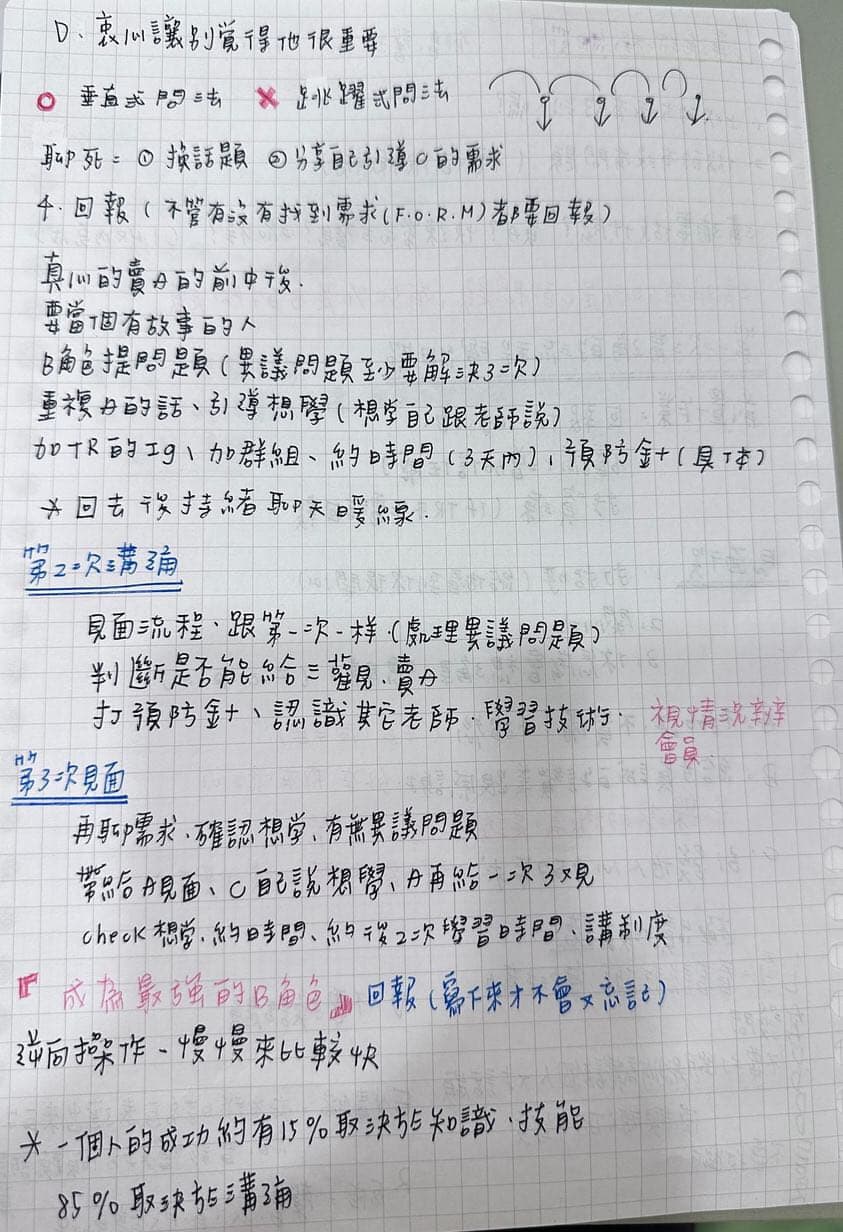 D、衷心讓別覺得他很重要
○ 垂直式問法 ✗ 跳躍式問法
聊死=①換話題 ②分享自己引導C的需求
4.回報(不管有沒有找到需求(F.O.R.M)都要回報)
真心的賣A的前中後.
要當個有故事的人
B角色提問題(異議問題至少要解決3次)
重複A的話、引導想學(想学自己跟老師說)
加TR的Ig、加群組、約時間(3天內)、預防針(具T本)
*回去後持緒聊天暖線.
第2次溝通
見面流程、跟第一次一样.(處理異議問題)
判斷是否能給三觀見.賣A
打預防針、認識其它老師.學習技術.
視情況辦會員
第3次見面
再聊需求.確認想学、有無異議問題
帶給A見面、C自己說想學、A再給一次3观
check想学.約時間、約後2次學習時間、講制度
『成為最強的B角色』回報(寫下來才不會又忘記)
逆向操作-慢慢來比較快
*一個人的成功約有15%取決於知識.技能
85%取決於溝通